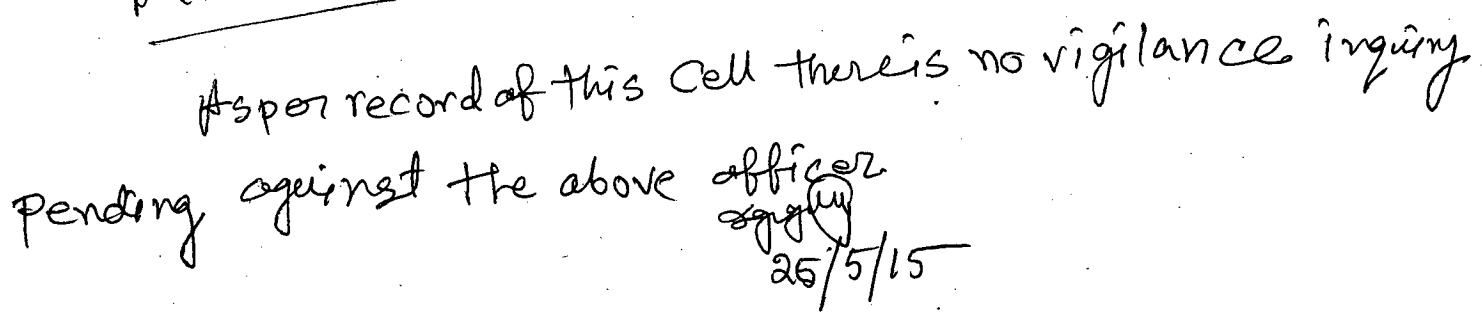 As per record of this Cell there is no vigilance inquiry
pending against the above officer
25/5/15